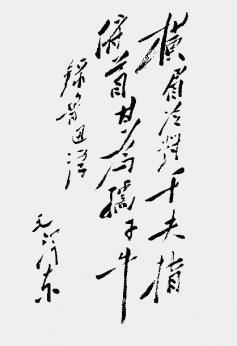 横眉冷对千夫指
俯首甘为孺子牛
录鲁迅语
毛泽东